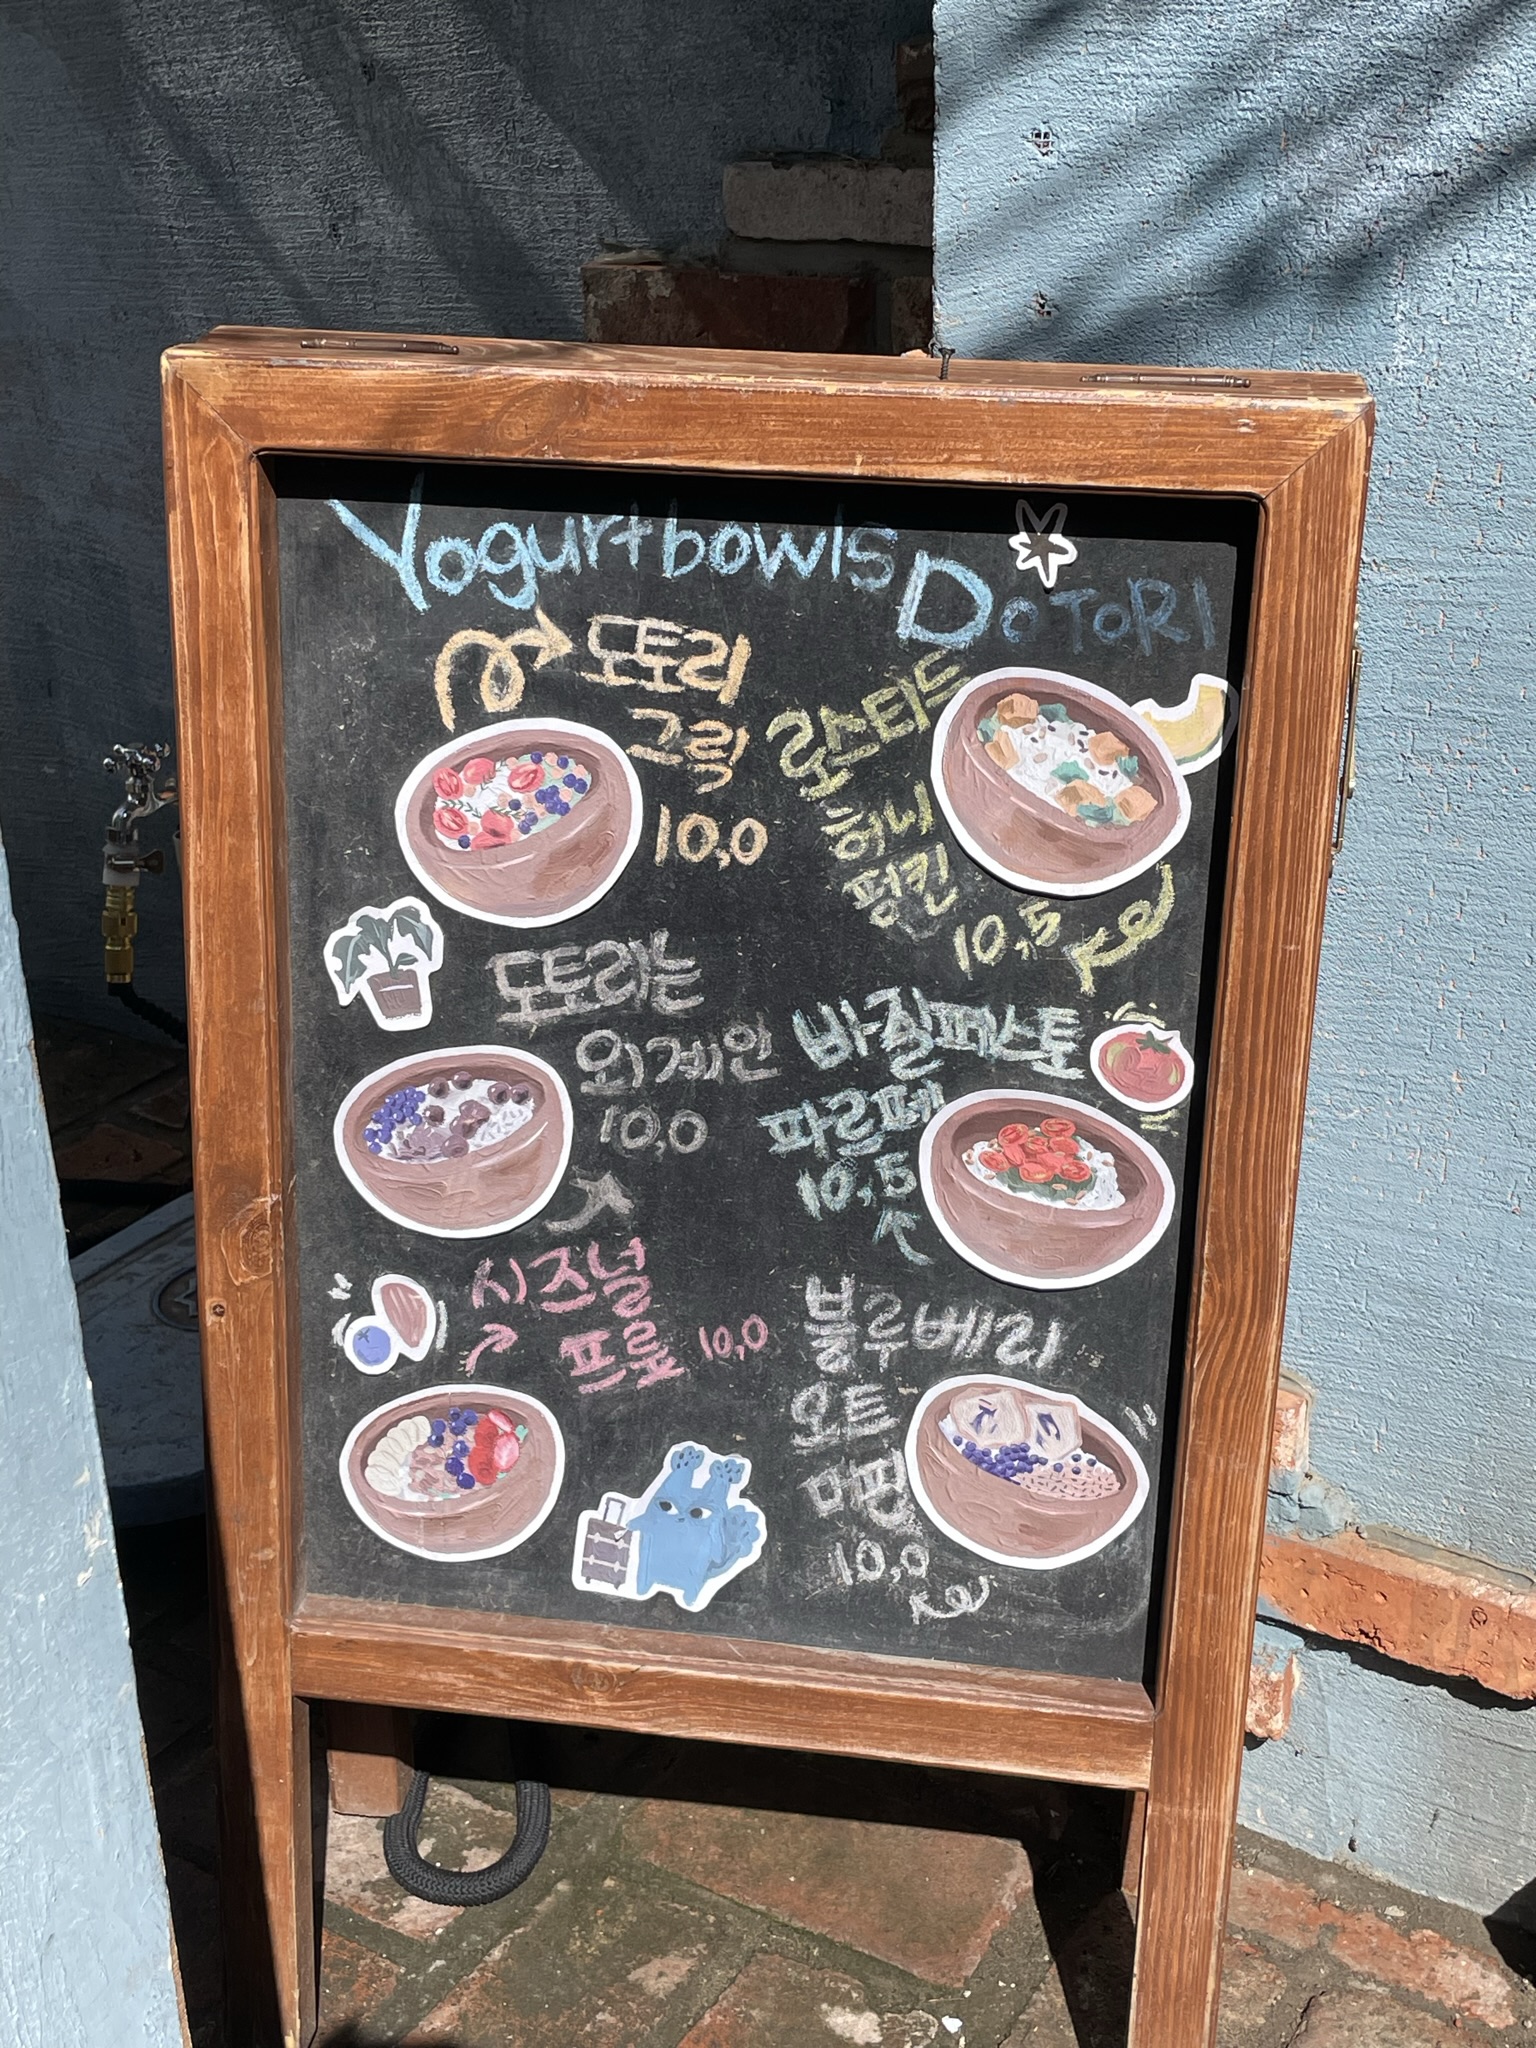 Yogurt bowls
DOTORI
도토리
그릭
10,0
로스티드
허니
펌킨
10,5
도토리는
외계인
10,0
바질페스토
파르페
10,5
시즈널
프룻 10,0
블루베리
오트
머핀
10,0